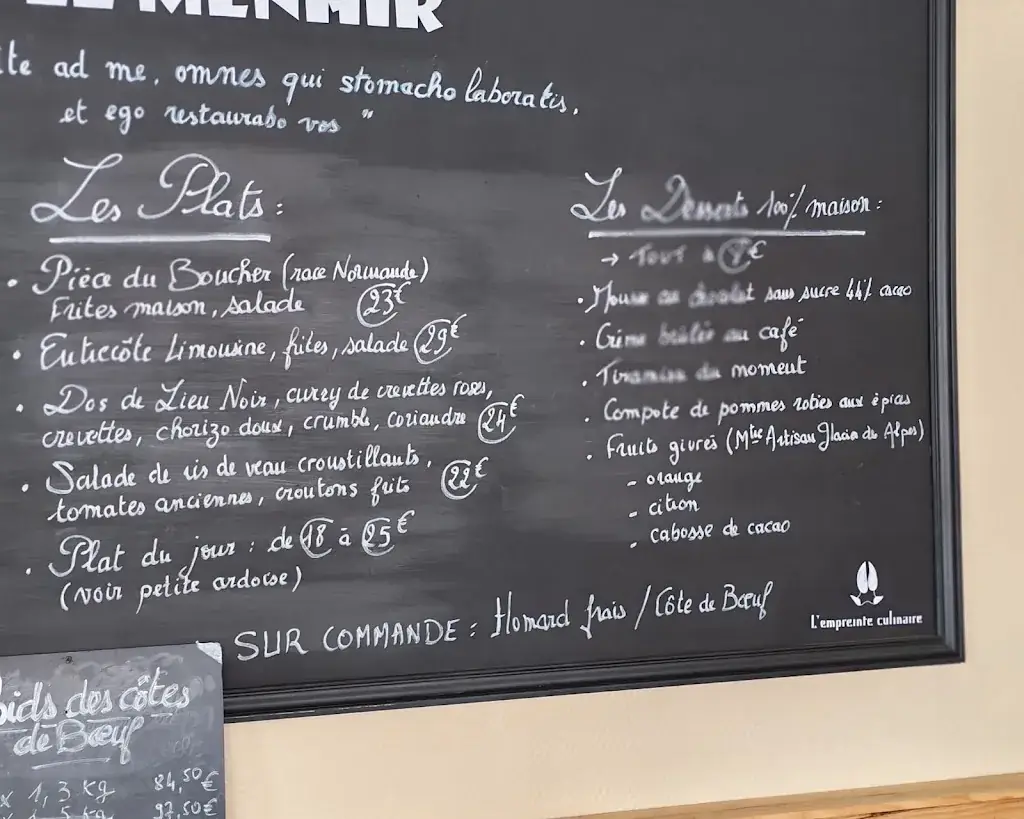 LE MENHIR
ad me, omnes qui stomacho laboratis,
et ego restaurabo vos "
Les Plats :
• Pièce du Boucher (race Normande)
Frites maison, salade 23€
• Entrecôte Limousine, frites, salade 29€
• Dos de Lieu Noir, curry de crevettes roses,
crevettes, chorizo doux, crumble, coriandre 24€
• Salade de ris de veau croustillants,
tomates anciennes, croutons frits 22€
• Plat du jour : de 18 à 25€
(voir petite ardoise)
Les Desserts 100% maison :
→ Tout à €
• Mousse au chocolat sans sucre 44% cacao
• Crème brûlée au café
• Tiramisu du moment
• Compote de pommes roties aux épices
• Fruits givrés (Mtre Artisan Glacier des Alpes)
- orange
- citron
- cabosse de cacao
SUR COMMANDE : Homard frais / Côte de Bœuf
L'empreinte culinaire
des côtes
de Bœuf
x 1,3 kg 84,50€
5 kg 97,50€